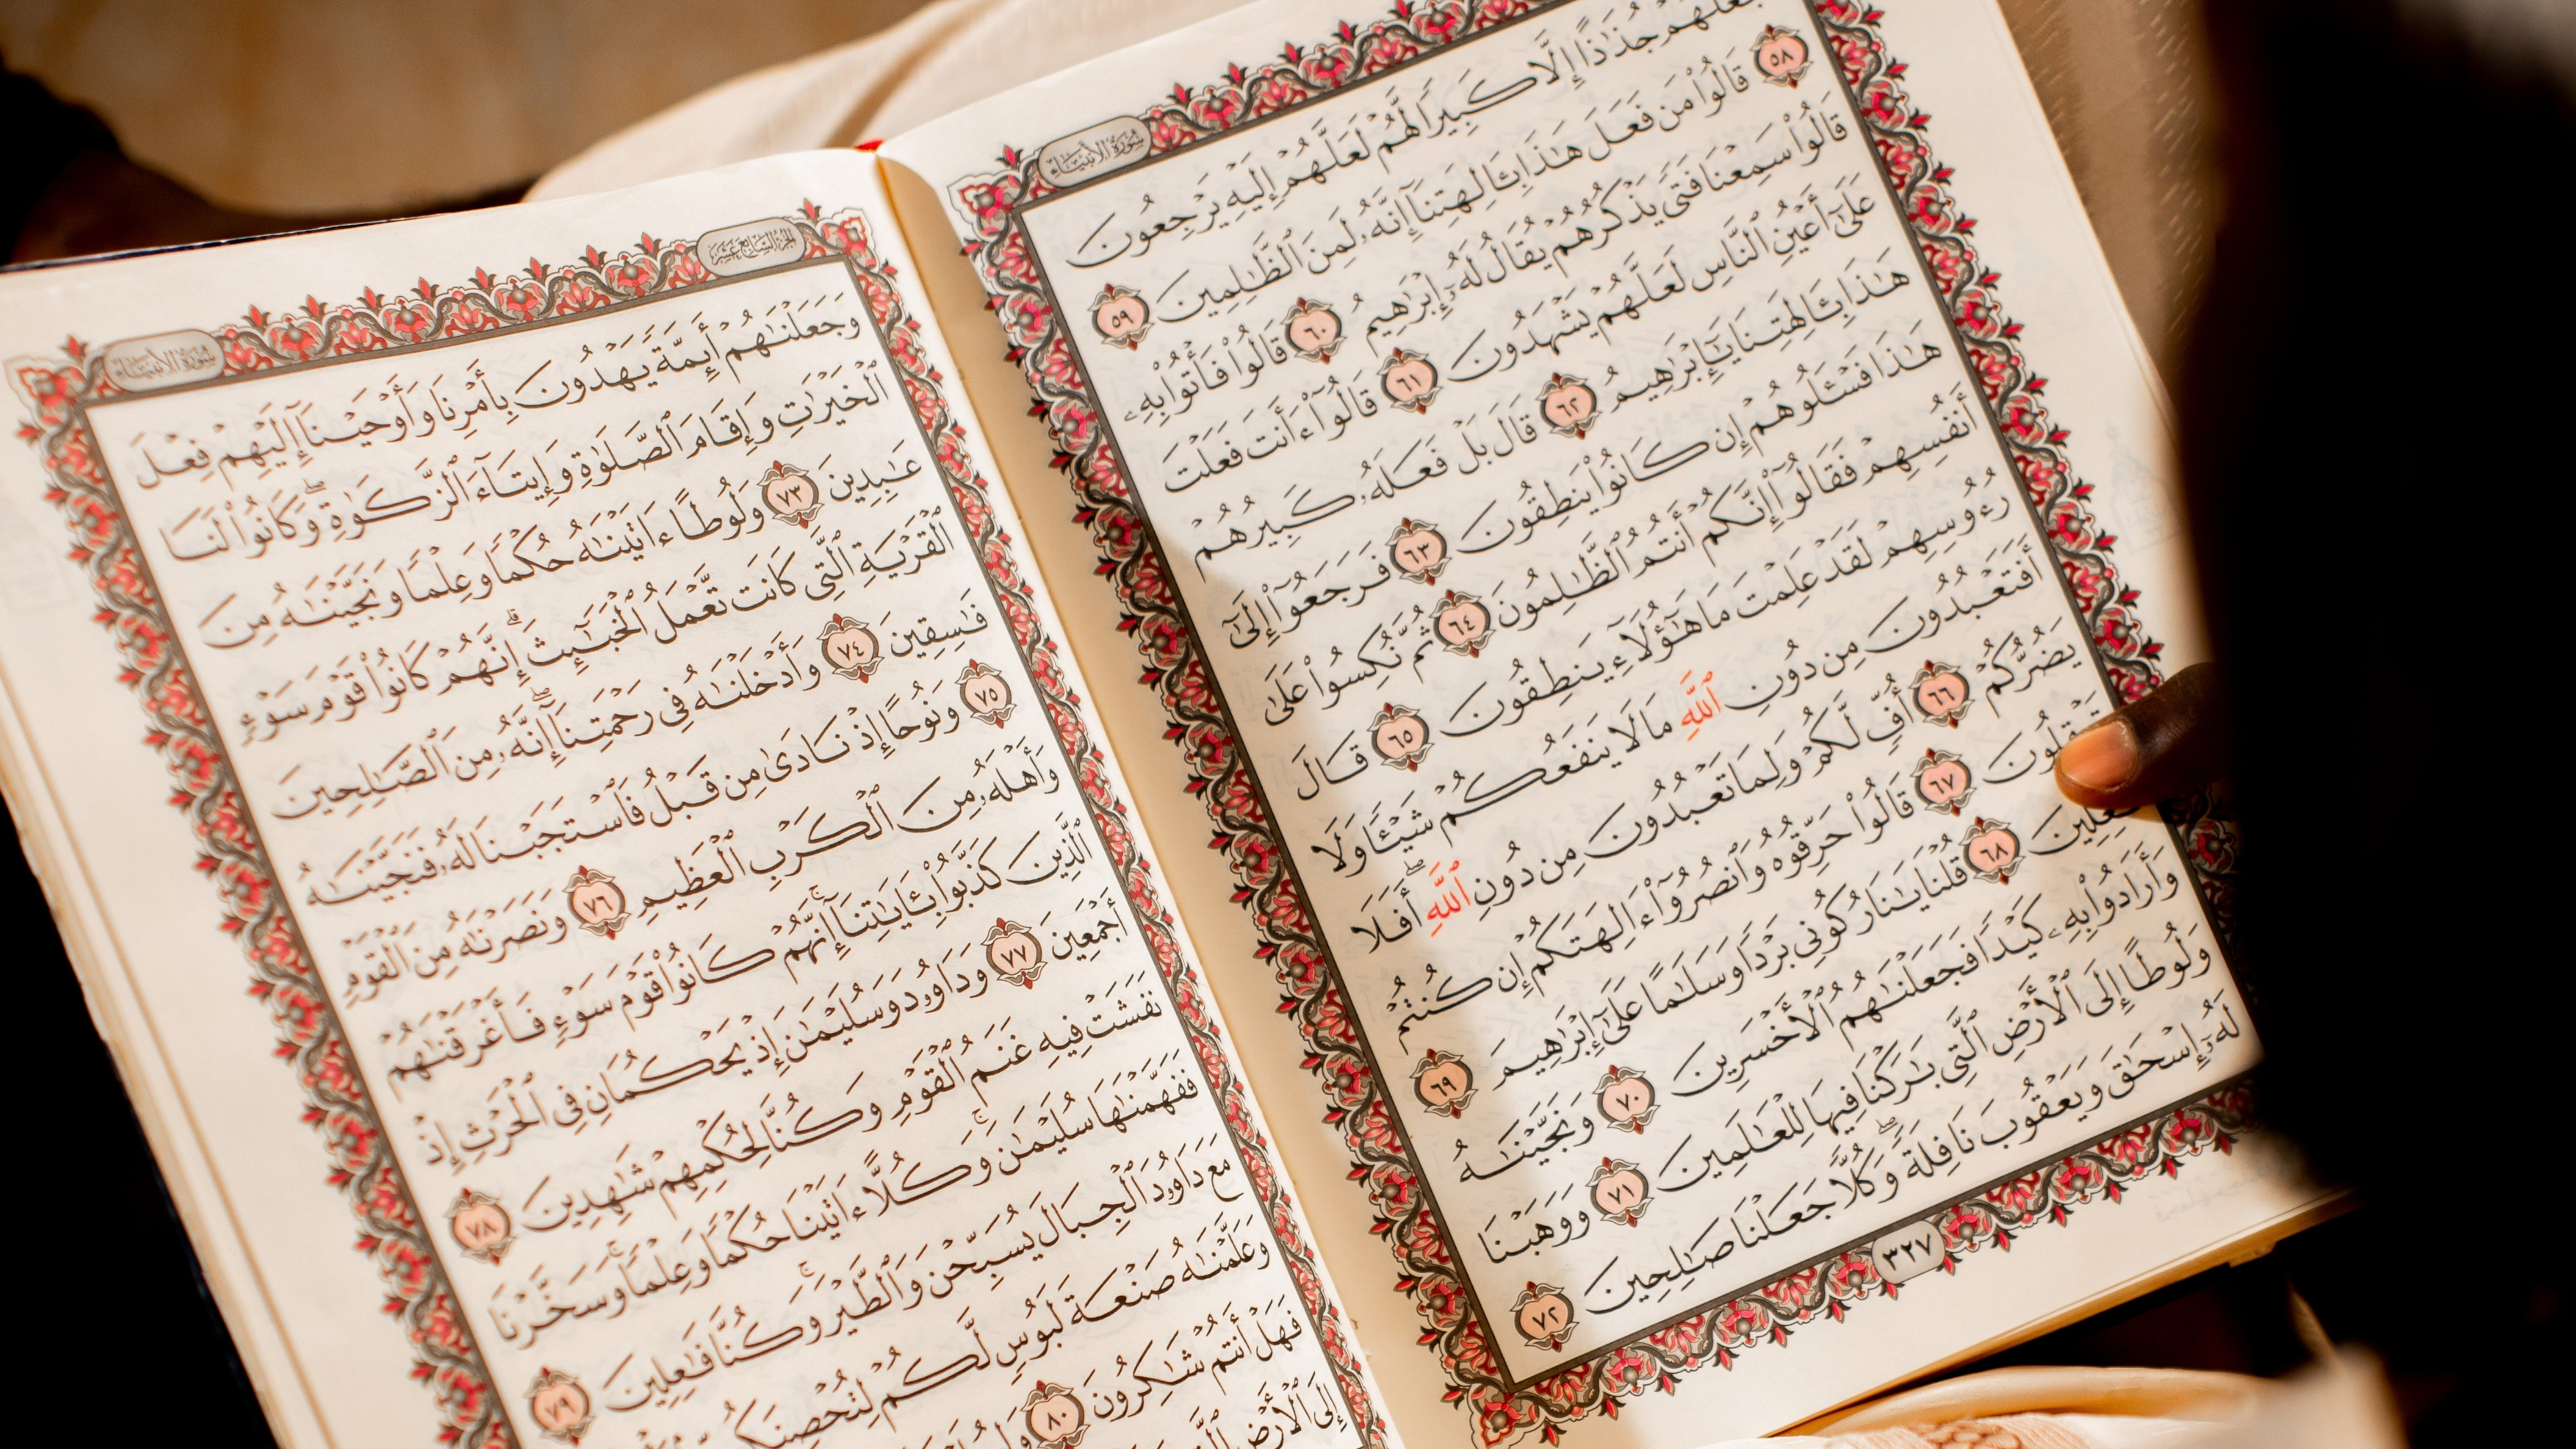 سُورَةُ الأَنبِيَاءِ
جُذَٰذًا إِلَّا كَبِيرًا لَّهُمْ لَعَلَّهُمْ إِلَيْهِ يَرْجِعُونَ
٥٨ قَالُوا۟ مَن فَعَلَ هَـٰذَا بِـَٔالِهَتِنَآ إِنَّهُۥ لَمِنَ ٱلظَّـٰلِمِينَ ٥٩
قَالُوا۟ سَمِعْنَا فَتًى يَذْكُرُهُمْ يُقَالُ لَهُۥٓ إِبْرَٰهِيمُ ٦٠ قَالُوا۟ فَأْتُوا۟ بِهِۦ
عَلَىٰٓ أَعْيُنِ ٱلنَّاسِ لَعَلَّهُمْ يَشْهَدُونَ ٦١ قَالُوٓا۟ ءَأَنتَ فَعَلْتَ
هَـٰذَا بِـَٔالِهَتِنَا يَـٰٓإِبْرَٰهِيمُ ٦٢ قَالَ بَلْ فَعَلَهُۥ كَبِيرُهُمْ
هَـٰذَا فَسْـَٔلُوهُمْ إِن كَانُوا۟ يَنطِقُونَ ٦٣ فَرَجَعُوٓا۟ إِلَىٰٓ
أَنفُسِهِمْ فَقَالُوٓا۟ إِنَّكُمْ أَنتُمُ ٱلظَّـٰلِمُونَ ٦٤ ثُمَّ نُكِسُوا۟ عَلَىٰ
رُءُوسِهِمْ لَقَدْ عَلِمْتَ مَا هَـٰٓؤُلَآءِ يَنطِقُونَ ٦٥ قَالَ
أَفَتَعْبُدُونَ مِن دُونِ ٱللَّهِ مَا لَا يَنفَعُكُمْ شَيْـًٔا وَلَا
يَضُرُّكُمْ ٦٦ أُفٍّ لَّكُمْ وَلِمَا تَعْبُدُونَ مِن دُونِ ٱللَّهِ ۖ أَفَلَا
٦٧ قَالُوا۟ حَرِّقُوهُ وَٱنصُرُوٓا۟ ءَالِهَتَكُمْ إِن كُنتُمْ
٦٨ قُلْنَا يَـٰنَارُ كُونِى بَرْدًا وَسَلَـٰمًا عَلَىٰٓ إِبْرَٰهِيمَ ٦٩
وَأَرَادُوا۟ بِهِۦ كَيْدًا فَجَعَلْنَـٰهُمُ ٱلْأَخْسَرِينَ ٧٠ وَنَجَّيْنَـٰهُ
وَلُوطًا إِلَى ٱلْأَرْضِ ٱلَّتِى بَـٰرَكْنَا فِيهَا لِلْعَـٰلَمِينَ ٧١ وَوَهَبْنَا
لَهُۥٓ إِسْحَـٰقَ وَيَعْقُوبَ نَافِلَةً ۖ وَكُلًّا جَعَلْنَا صَـٰلِحِينَ ٧٢
٣٢٧
الجُزْءُ السَّابِعُ عَشَرَ
سُورَةُ الأَنبِيَاءِ
وَجَعَلْنَـٰهُمْ أَئِمَّةً يَهْدُونَ بِأَمْرِنَا وَأَوْحَيْنَآ إِلَيْهِمْ فِعْلَ
ٱلْخَيْرَٰتِ وَإِقَامَ ٱلصَّلَوٰةِ وَإِيتَآءَ ٱلزَّكَوٰةِ ۖ وَكَانُوا۟ لَنَا
عَـٰبِدِينَ ٧٣ وَلُوطًا ءَاتَيْنَـٰهُ حُكْمًا وَعِلْمًا وَنَجَّيْنَـٰهُ مِنَ
ٱلْقَرْيَةِ ٱلَّتِى كَانَت تَّعْمَلُ ٱلْخَبَـٰٓئِثَ ۗ إِنَّهُمْ كَانُوا۟ قَوْمَ سَوْءٍ
فَـٰسِقِينَ ٧٤ وَأَدْخَلْنَـٰهُ فِى رَحْمَتِنَآ ۖ إِنَّهُۥ مِنَ ٱلصَّـٰلِحِينَ
٧٥ وَنُوحًا إِذْ نَادَىٰ مِن قَبْلُ فَٱسْتَجَبْنَا لَهُۥ فَنَجَّيْنَـٰهُ
وَأَهْلَهُۥ مِنَ ٱلْكَرْبِ ٱلْعَظِيمِ ٧٦ وَنَصَرْنَـٰهُ مِنَ ٱلْقَوْمِ
ٱلَّذِينَ كَذَّبُوا۟ بِـَٔايَـٰتِنَآ ۚ إِنَّهُمْ كَانُوا۟ قَوْمَ سَوْءٍ فَأَغْرَقْنَـٰهُمْ
أَجْمَعِينَ ٧٧ وَدَاوُۥدَ وَسُلَيْمَـٰنَ إِذْ يَحْكُمَانِ فِى ٱلْحَرْثِ إِذْ
نَفَشَتْ فِيهِ غَنَمُ ٱلْقَوْمِ وَكُنَّا لِحُكْمِهِمْ شَـٰهِدِينَ ٧٨
فَفَهَّمْنَـٰهَا سُلَيْمَـٰنَ ۚ وَكُلًّا ءَاتَيْنَا حُكْمًا وَعِلْمًا ۚ وَسَخَّرْنَا
مَعَ دَاوُۥدَ ٱلْجِبَالَ يُسَبِّحْنَ وَٱلطَّيْرَ ۚ وَكُنَّا فَـٰعِلِينَ ٧٩
وَعَلَّمْنَـٰهُ صَنْعَةَ لَبُوسٍ لَّكُمْ لِتُحْصِنَكُم
فَهَلْ أَنتُمْ شَـٰكِرُونَ ٨٠
إِلَى ٱلْأَرْضِ